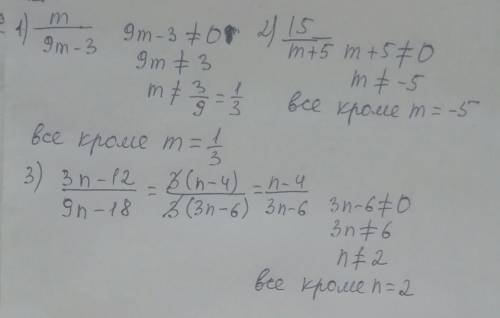 1) m/(9m-3) 9m-3≠0
9m≠3
m≠3/9=1/3
все кроме m=1/3
2) 15/(m+5) m+5≠0
m≠-5
все кроме m=-5
3) (3n-12)/(9n-18)=(3(n-4))/(3(3n-6))=(n-4)/(3n-6) 3n-6≠0
3n≠6
n≠2
все кроме n=2